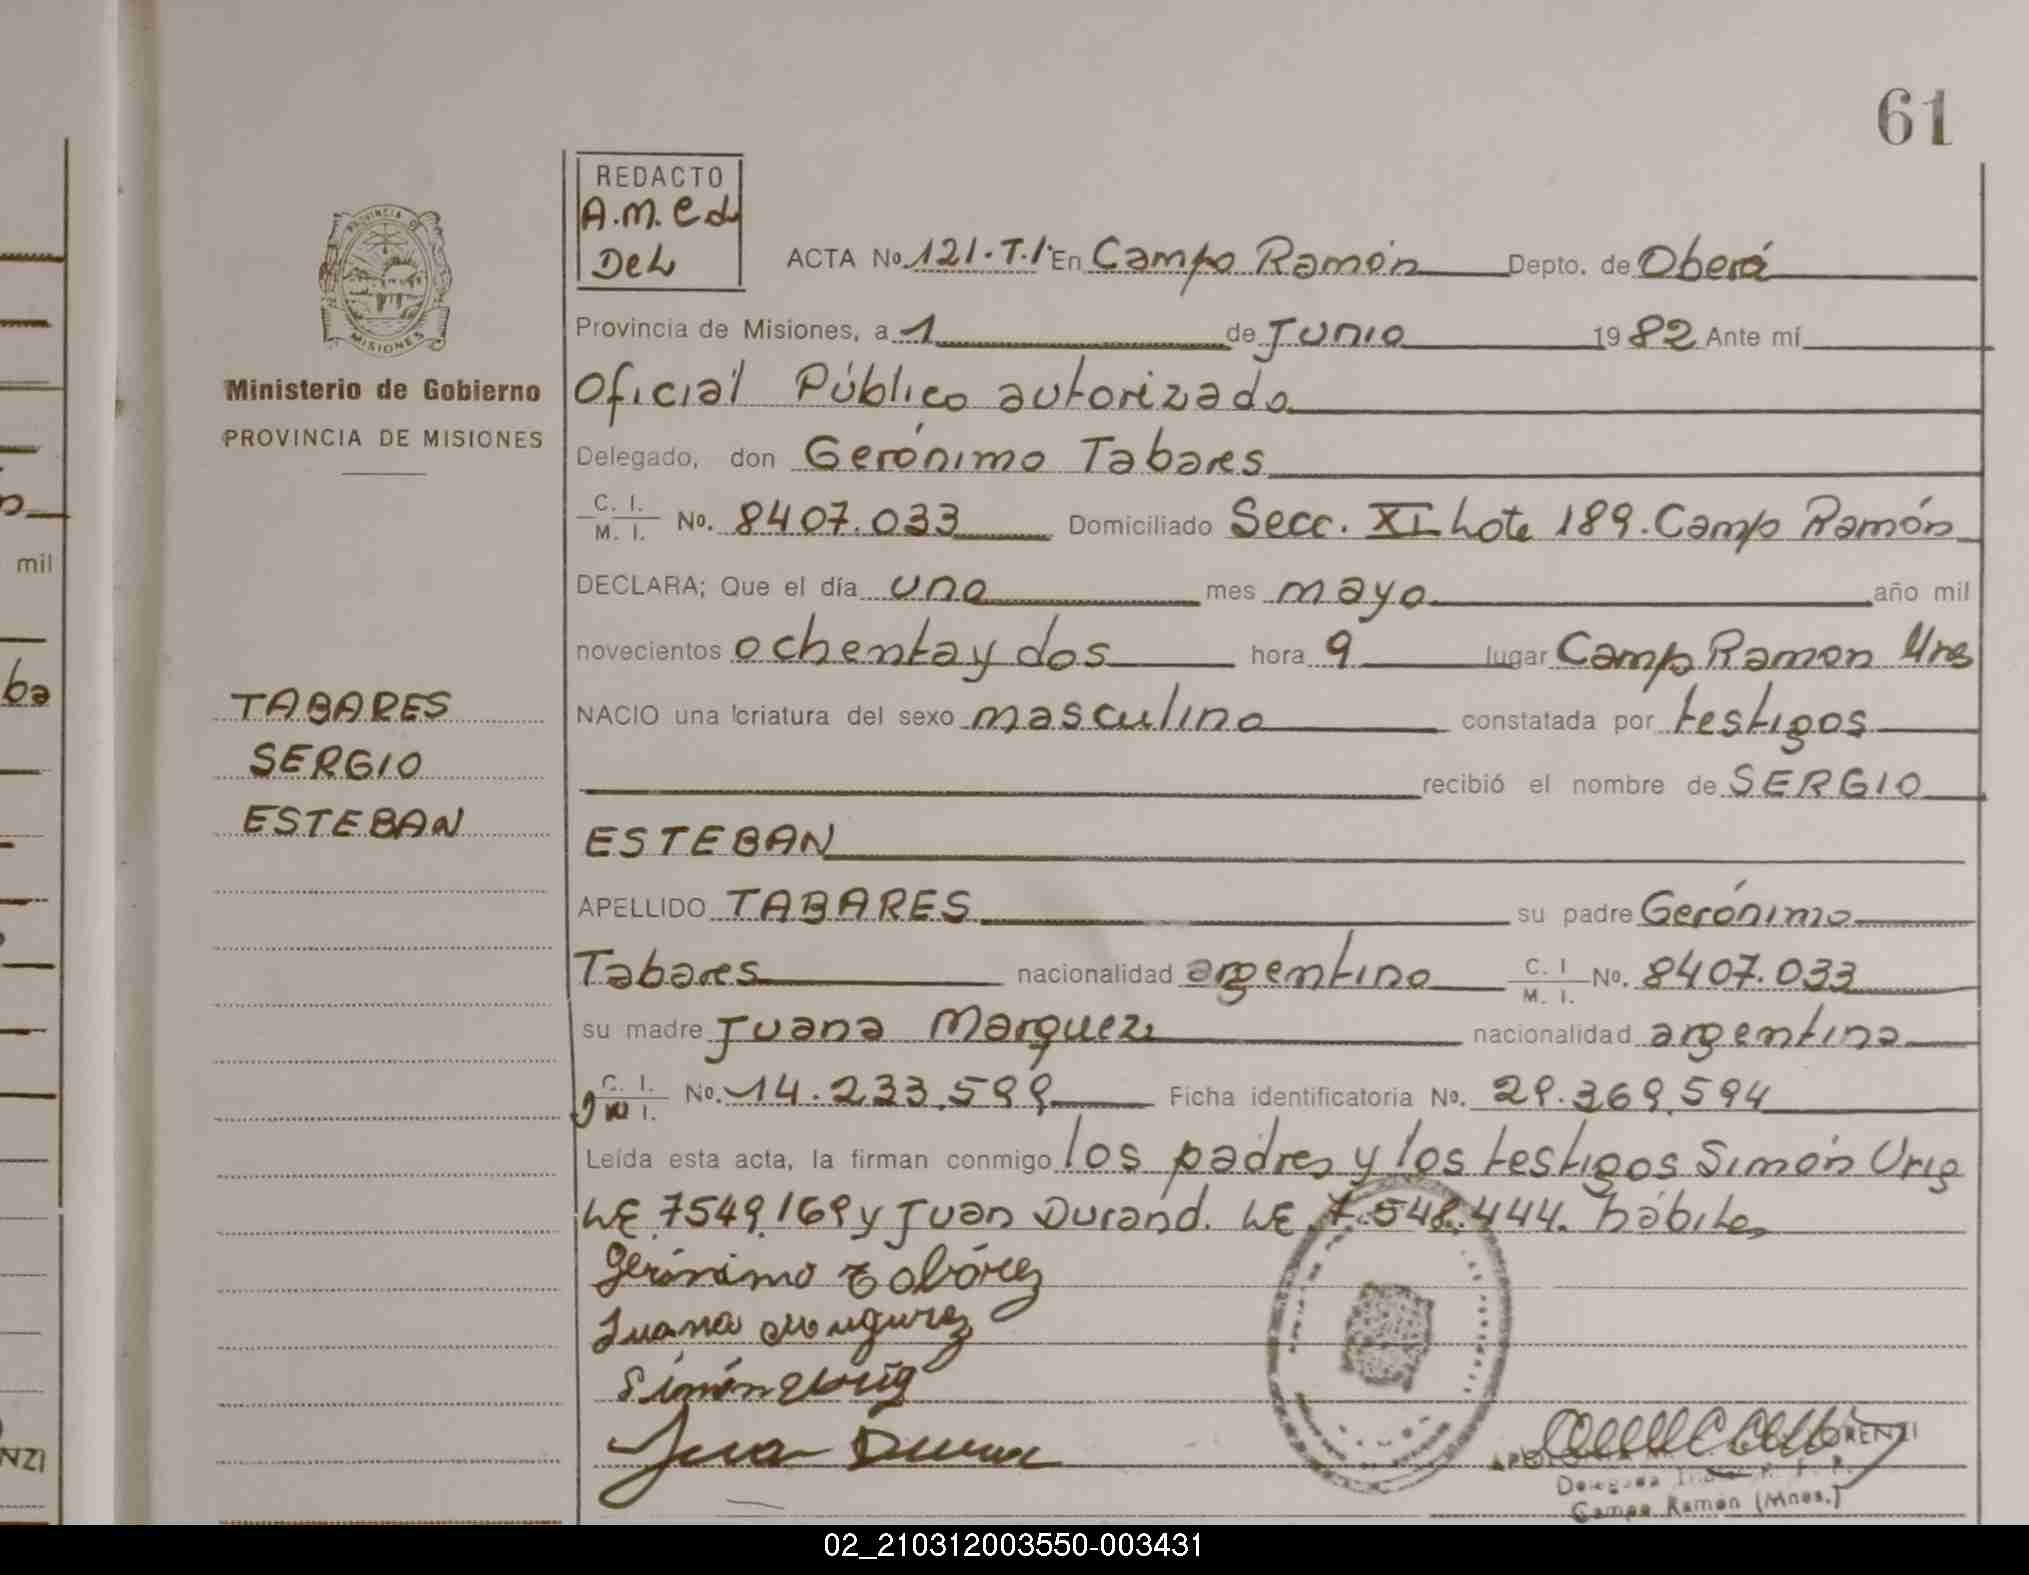 61
REDACTO
A.M. e d
DeL
ACTA No 121.T.1º En Campo Ramón Depto. de Oberá
Provincia de Misiones, a 1 de Junio 1982 Ante mí
Oficial Público autorizado
Delegado, don Gerónimo Tabares
C. I. M. I. No. 8407.033 Domiciliado Secc. XI Lote 189. Campo Ramón
DECLARA; Que el día uno mes mayo año mil
novecientos ochenta y dos hora 9 lugar Campo Ramon Mnes
NACIO una criatura del sexo masculino constatada por testigos
recibió el nombre de SERGIO
ESTEBAN
APELLIDO TABARES su padre Gerónimo
Tabares nacionalidad argentino C. I M. I. No. 8407.033
su madre Juana Marquez nacionalidad argentina
C. I. M. I. No. 14.233.599 Ficha identificatoria No. 29.369.594
Leída esta acta, la firman conmigo los padres y los testigos Simón Urig
LE 7549.169 y Juan Durand. LE 7.548.444. hábiles
Gerónimo Tabárez
Juana
Simón
Juan
PROVINCIA DE
MISIONES
Ministerio de Gobierno
PROVINCIA DE MISIONES
TABARES
SERGIO
ESTEBAN
mil
ba
NZI
ORENZI
Delegada
Campo Ramón (Mnes.)
02_210312003550-003431